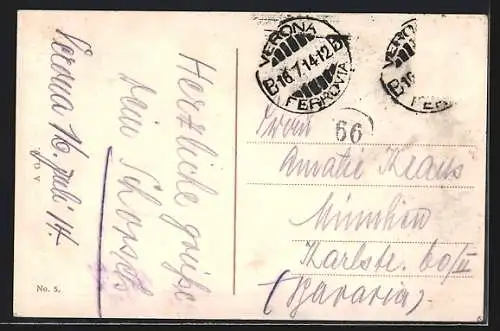 Verona 16. Juli 14.
Herzliche Grüße
Dein Schorsch
No. 5.
VERONA
B 16.7.14-12 B
FERROVIA
66
Frau
Amalie Kraus
München
Karlstr. 60/II
(Bavaria)